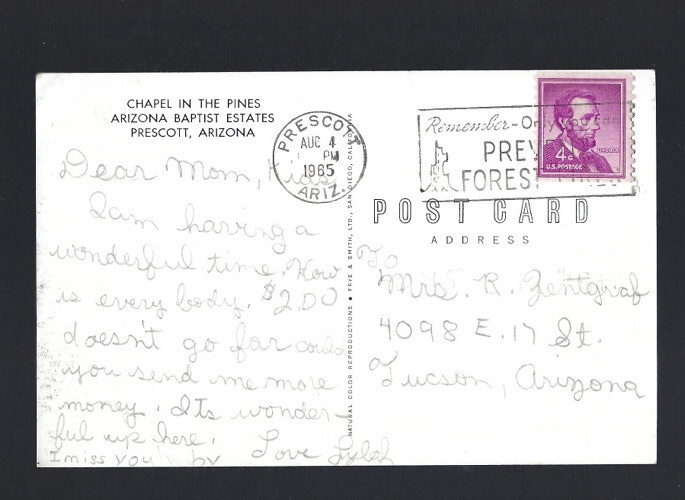 CHAPEL IN THE PINES
ARIZONA BAPTIST ESTATES
PRESCOTT, ARIZONA
Dear Mom, Kids,
I am having a
wonderful time. How
is every body. $2.00
doesn't go far could
you send me more
money. Its wonder-
ful up here.
Love Lylah
I miss you
NATURAL COLOR REPRODUCTIONS • FRYE & SMITH, LTD., SAN DIEGO, CALIFORNIA
PRESCOTT
AUG 4
PM
1965
ARIZ.
Remember - Only you can
PREV
FOREST
LINCOLN
4¢
U.S. POSTAGE
POST CARD
ADDRESS
To
Mrs. R. Zentgraf
4098 E. 17 St.
Tucson, Arizona